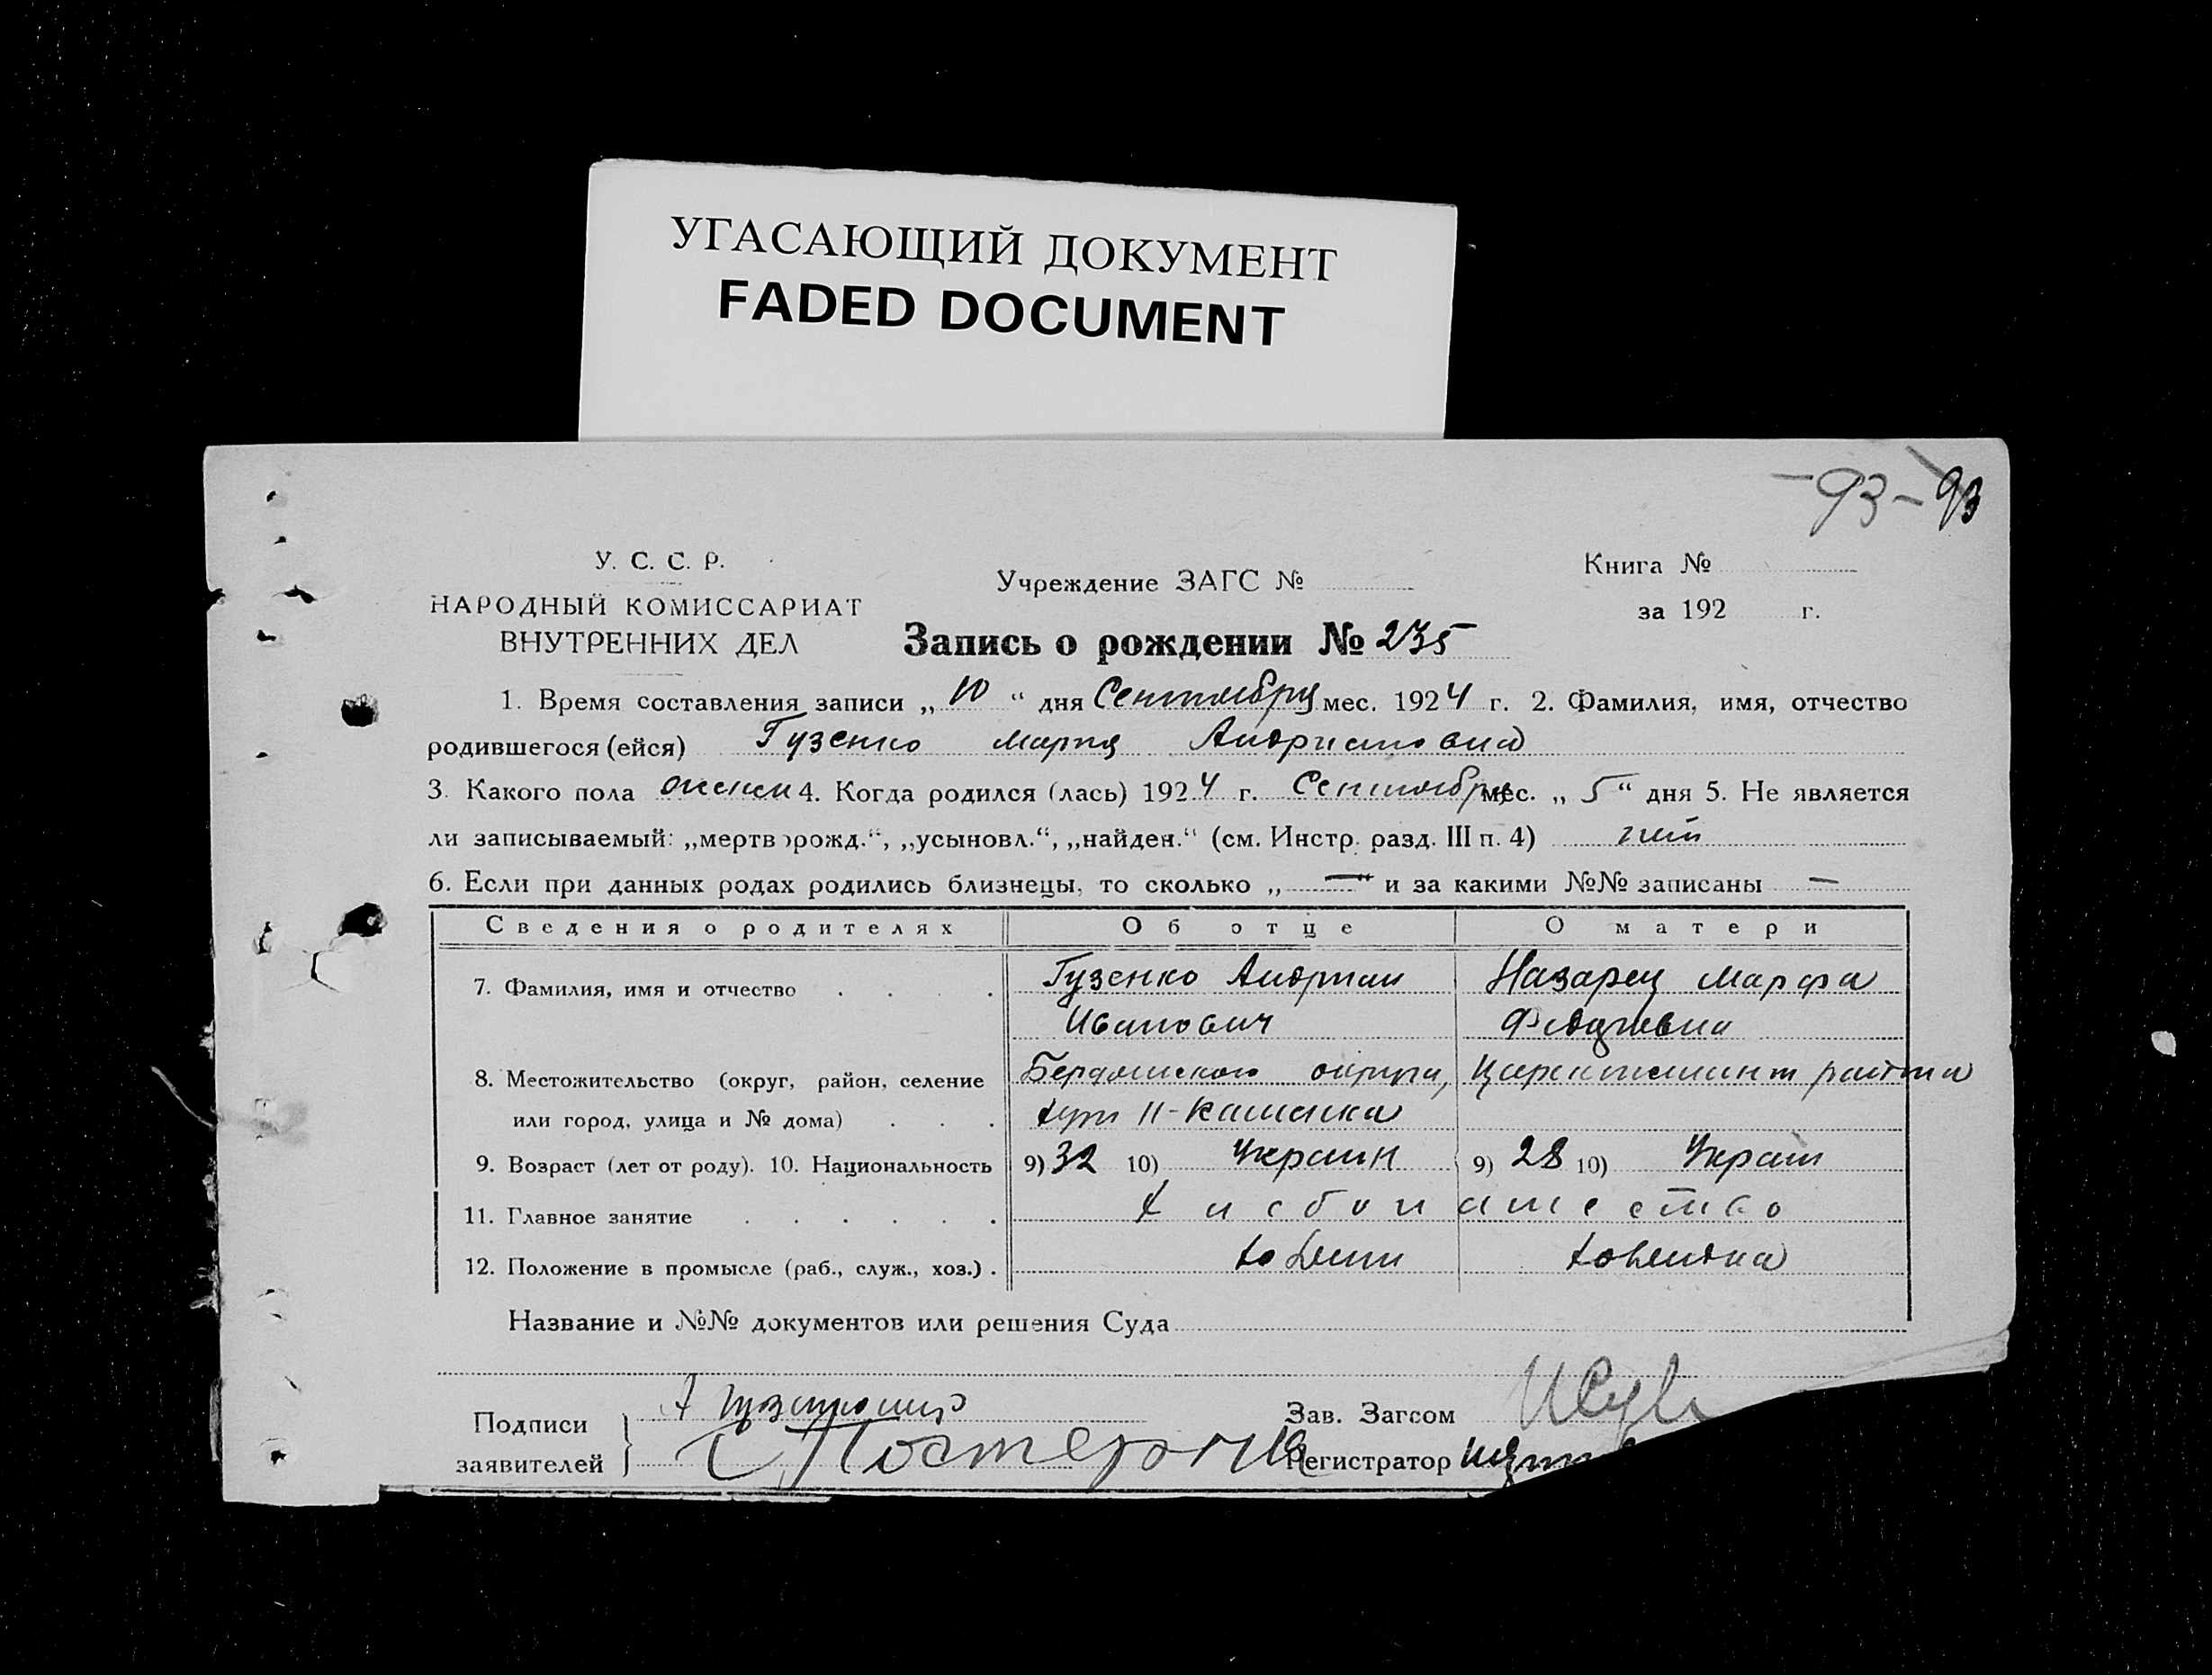 УГАСАЮЩИЙ ДОКУМЕНТ
FADED DOCUMENT
93 - 93
У. С. С. Р.
НАРОДНЫЙ КОМИССАРИАТ
ВНУТРЕННИХ ДЕЛ
Учреждение ЗАГС №
Книга №
за 192 г.
Запись о рождении № 235
1. Время составления записи „ 10 “ дня Сентября мес. 1924 г. 2. Фамилия, имя, отчество
родившегося (ейся) Гузенко Мария Андриановна
3. Какого пола женск 4. Когда родился (лась) 1924 г. Сентября мес. „ 5 “ дня 5. Не является
ли записываемый: „мертворожд.“, „усыновл.“, „найден.“ (см. Инстр. разд. III п. 4) нет
6. Если при данных родах родились близнецы, то сколько „ — “ и за какими №№ записаны —
Сведения о родителях Об отце О матери
7. Фамилия, имя и отчество . . . . Гузенко Андриан Назарец Марфа
Иванович
8. Местожительство (округ, район, селение Бердянского округа, района
или город, улица и № дома) . . . хут Н-Каменка
9. Возраст (лет от роду). 10. Национальность 9) 32 10) Украин 9) 28 10) Украин
11. Главное занятие . . . . . . Хлебопашество
12. Положение в промысле (раб., служ., хоз.) . хозяин хозяйка
Название и №№ документов или решения Суда
Подписи
заявителей
Зав. Загсом
Регистратор